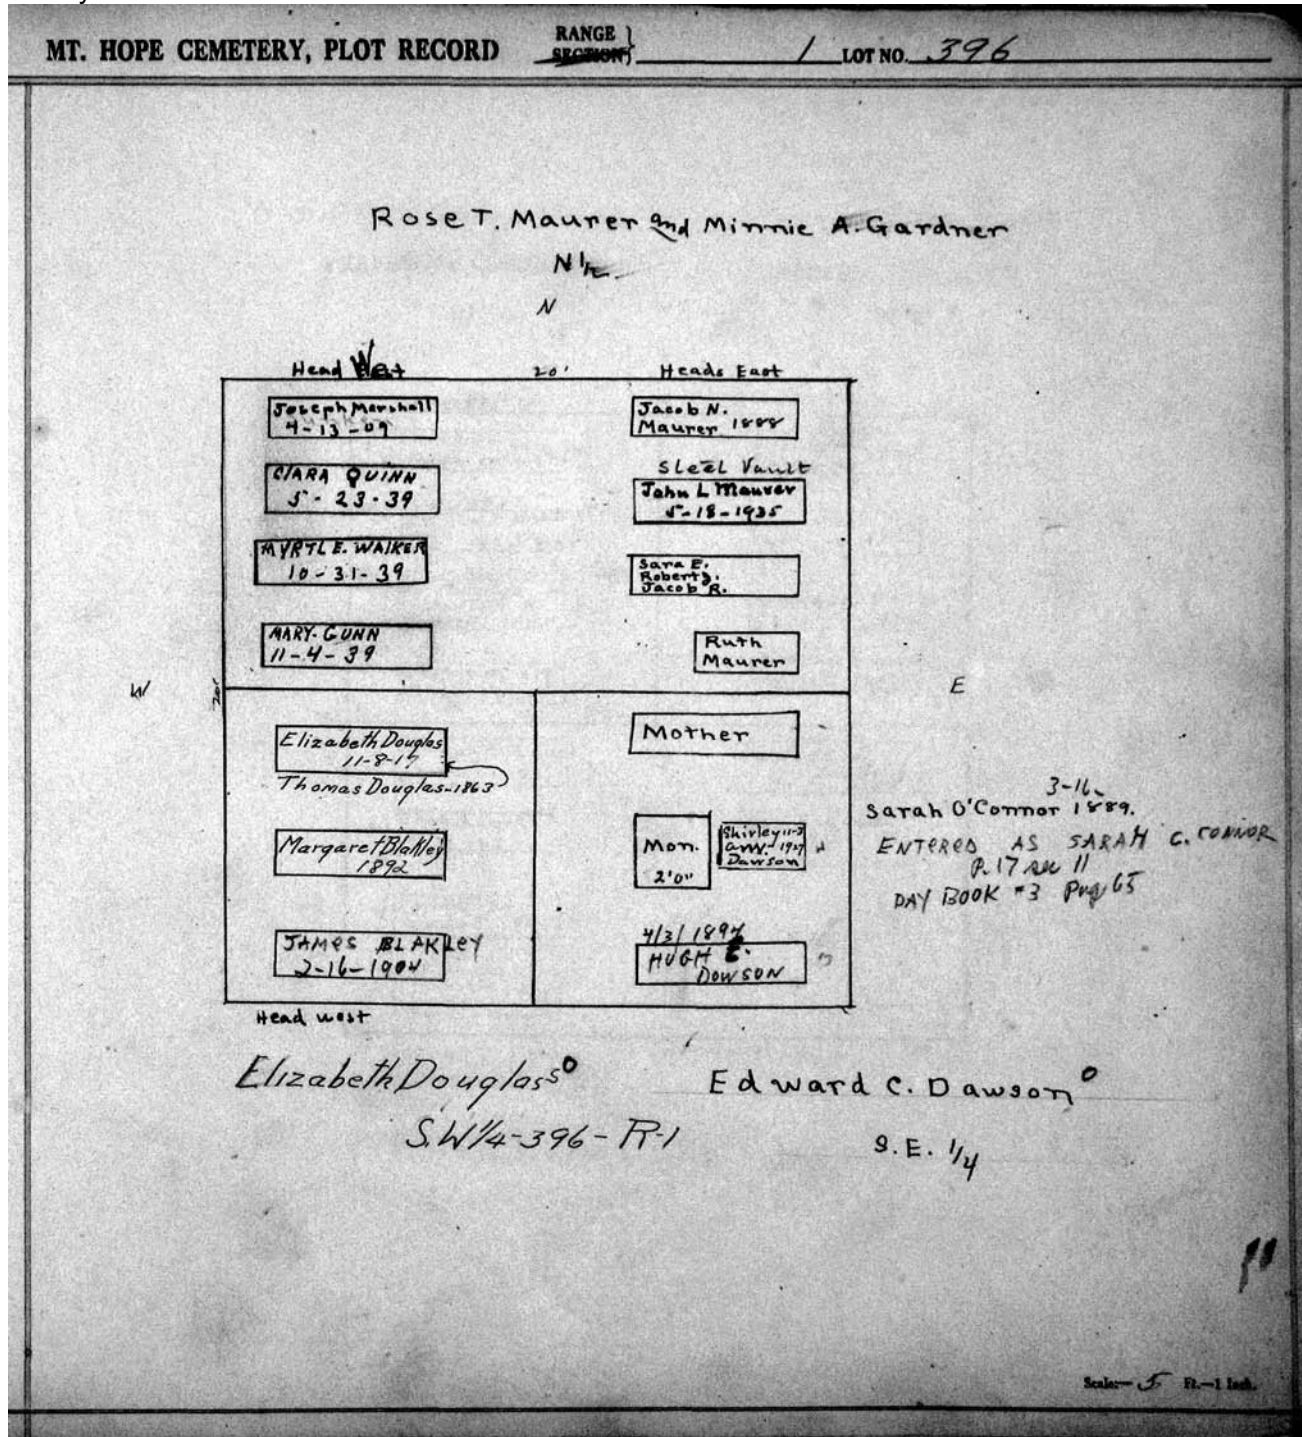 MT. HOPE CEMETERY, PLOT RECORD RANGE SECTION} 1 LOT NO. 396
Rose T. Maurer and Minnie A. Gardner
N 1/2
N
Head West 20' Heads East
Joseph Marshall
4-13-09
CLARA QUINN
5-23-39
MYRTLE E. WALKER
10-31-39
MARY GUNN
11-4-39
Jacob N.
Maurer 1888
Steel Vault
John L Maurer
5-18-1935
Sara E.
Robert J.
Jacob R.
Ruth
Maurer
W
20'
E
Elizabeth Douglas
11-8-17
Thomas Douglas-1863
Margaret Blakley
1892
JAMES BLAKLEY
2-16-1904
Head west
Mother
Mon.
2'0"
Shirley 11-3
Ann 1927
Dawson
4/3/1894
HUGH E.
DOWSON
3-16-
Sarah O'Connor 1889.
ENTERED AS SARAH C. CONNOR
P. 17 sec 11
DAY BOOK #3 Pag 65
Elizabeth Douglass
S.W 1/4-396-R-1
Edward C. Dawson
S.E. 1/4
Scale:— 5 Ft.—1 Inch.